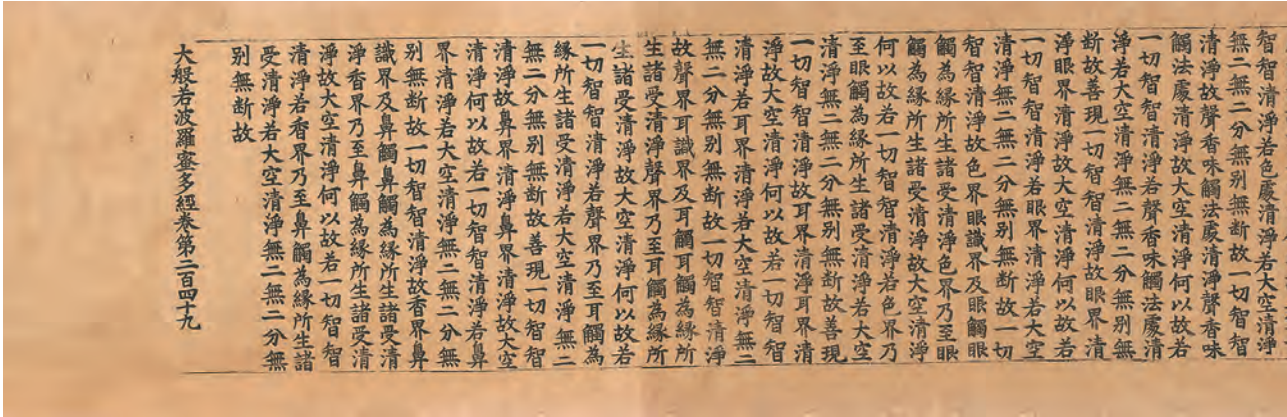 智智清淨若色處清淨若大空清淨
無二無二分無别無斷故一切智智
清淨故聲香味觸法處清淨聲香味
觸法處清淨故大空清淨何以故若
一切智智清淨若聲香味觸法處清
淨若大空清淨無二無二分無别無
斷故善現一切智智清淨故眼界清
淨眼界清淨故大空清淨何以故若
一切智智清淨若眼界清淨若大空
清淨無二無二分無别無斷故一切
智智清淨故色界眼識界及眼觸眼
觸為緣所生諸受清淨色界乃至眼
觸為緣所生諸受清淨故大空清淨
何以故若一切智智清淨若色界乃
至眼觸為緣所生諸受清淨若大空
清淨無二無二分無别無斷故善現
一切智智清淨故耳界清淨耳界清
淨故大空清淨何以故若一切智智
清淨若耳界清淨若大空清淨無二
無二分無别無斷故一切智智清淨
故聲界耳識界及耳觸耳觸為緣所
生諸受清淨聲界乃至耳觸為緣所
生諸受清淨故大空清淨何以故若
一切智智清淨若聲界乃至耳觸為
緣所生諸受清淨若大空清淨無二
無二分無别無斷故善現一切智智
清淨故鼻界清淨鼻界清淨故大空
清淨何以故若一切智智清淨若鼻
界清淨若大空清淨無二無二分無
别無斷故一切智智清淨故香界鼻
識界及鼻觸鼻觸為緣所生諸受清
淨香界乃至鼻觸為緣所生諸受清
淨故大空清淨何以故若一切智智
清淨若香界乃至鼻觸為緣所生諸
受清淨若大空清淨無二無二分無
别無斷故
大般若波羅蜜多經卷第二百四十九